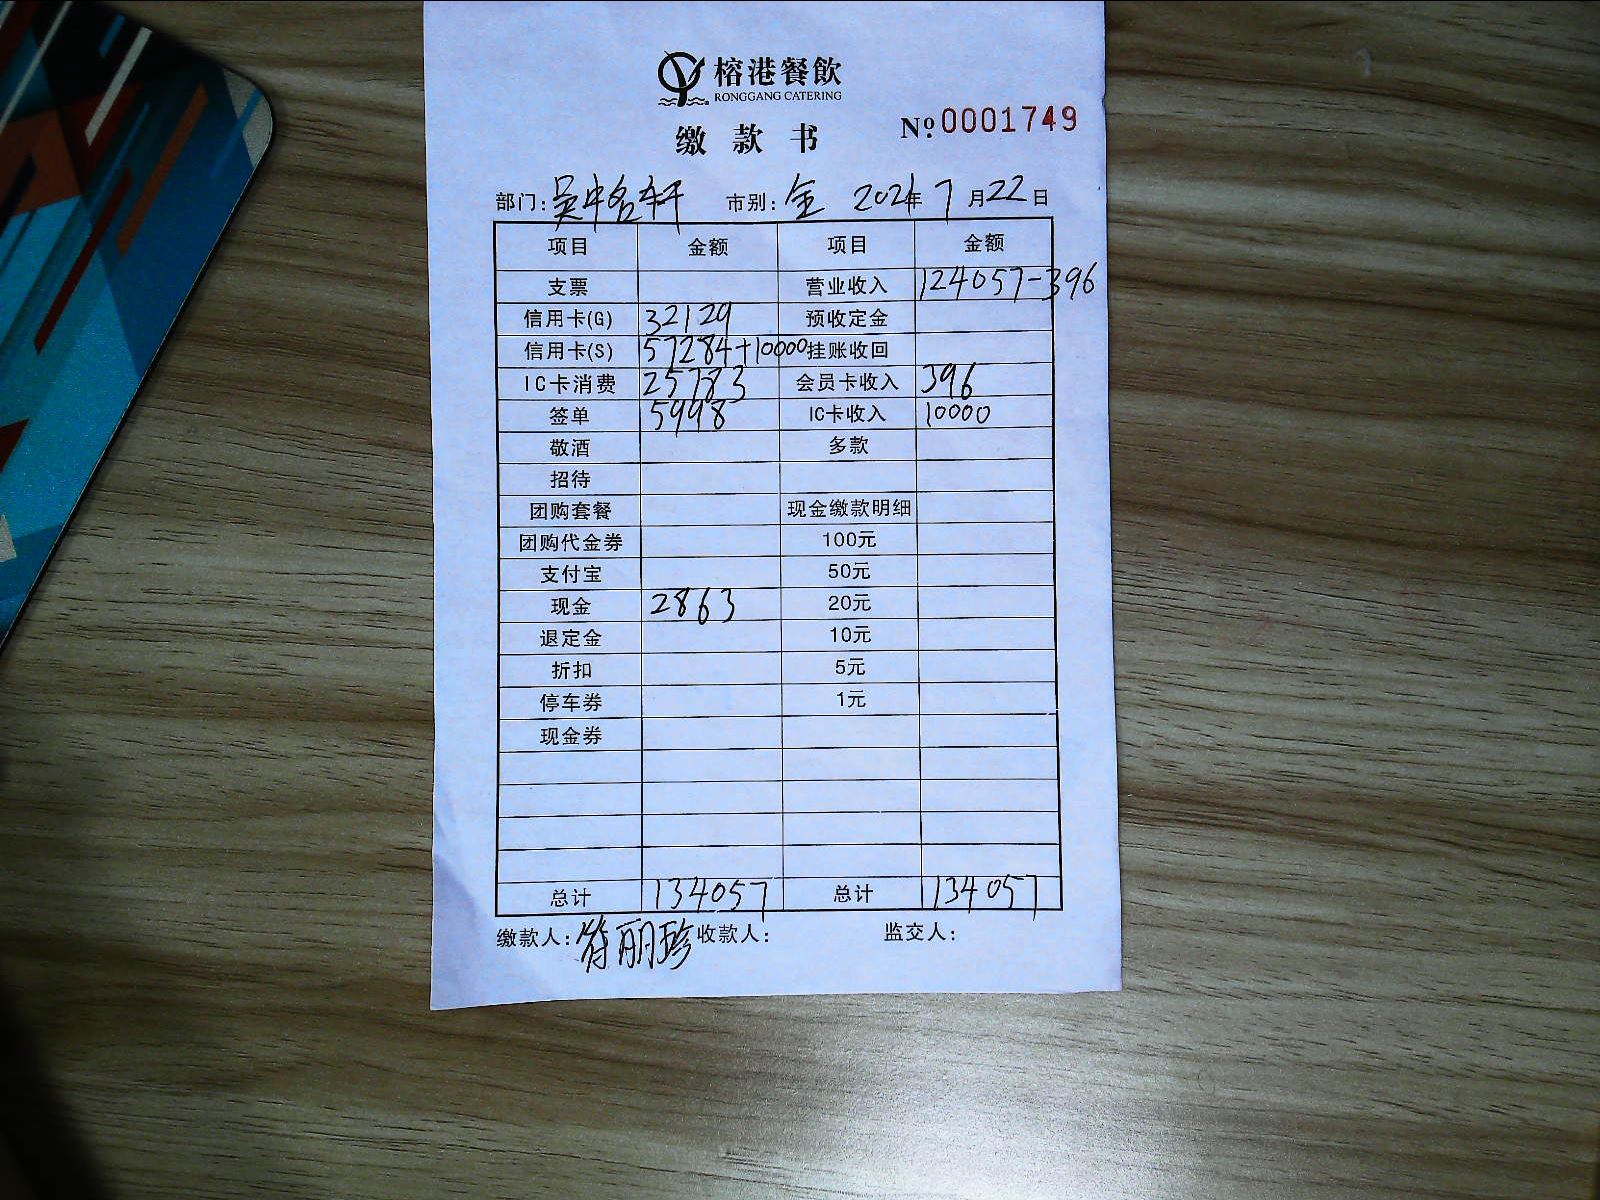 榕港餐飲
RONGGANG CATERING
缴款书 №0001749
部门:吴中名轩 市别:全 2021年7月22日
项目 金额 项目 金额
支票 营业收入 124057-396
信用卡(G) 32129 预收定金
信用卡(S) 57284+10000 挂账收回
IC卡消费 25783 会员卡收入 396
签单 5998 IC卡收入 10000
敬酒 多款
招待
团购套餐 现金缴款明细
团购代金券 100元
支付宝 50元
现金 2863 20元
退定金 10元
折扣 5元
停车券 1元
现金券
总计 134057 总计 134057
缴款人:符丽珍 收款人: 监交人: